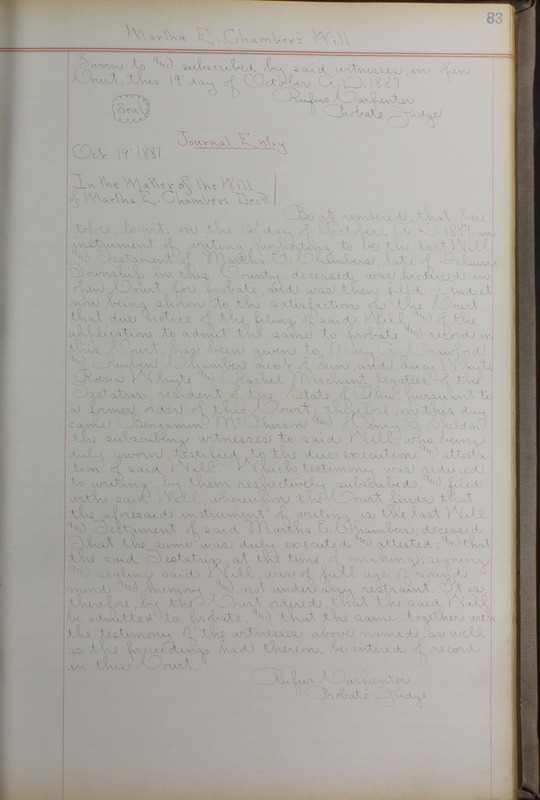 83
Martha E. Chambers Will
Sworn to and subscribed by said witnesses, in open
Court, this 19" day of October, A.D. 1887
Rufus Carpenter
Seal
Probate Judge
Journal Entry
Oct 19" 1887
In the Matter of the Will
of Martha E. Chambers Decd.
Be it rembered, that here
tofore, to wit, on the 12" day of October, A.D. 1887 an
instrument of writing, purporting to be the last Will
and Testament of Martha E. Chambers late of Delaware
Township in this County, deceased, was produced in
open Court for probate and was then filed. And it
now being shown to the satisfaction of the Court
that due notice of the filing of said Will, and of the
application to admit the same to probate and record in
this Court, has been given to Mary Crawford
and Reuben Chamber next of kin and Lucy Whyte
Rosina Whyte and Rachel Merchant legatees of the
Testatrix, resident of the State of Ohio, pursuant to
a former order of this Court; therefore, on this day
came Benjamin McPherson and Henry Weldon
the subscribing witnesses to said Will, who being
duly sworn, testified to the due execution and attesta-
tion of said Will. Which testimony was reduced
to writing, by them respectively subscribed, and filed
with said Will, whereupon the Court finds that
the aforesaid instrument of writing is the last Will
and Testament of said Martha E. Chambers, deceased
That the same was duly executed and attested; and that
the said Testatrix at the time of making, signing
and sealing said Will, was of full age, of sound
mind and memory and not under any restraint. It is
therefore, by the Court ordered, that the said Will
be admitted to probate, and that the same together with
the testimony of the witnesses above named, as well
as the proceedings had thereon, be entered of record
in this Court.
Rufus Carpenter
Probate Judge